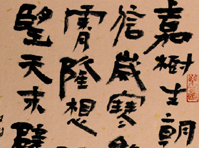 嘉樹生朝
信歲寒
霄隆想
望天末